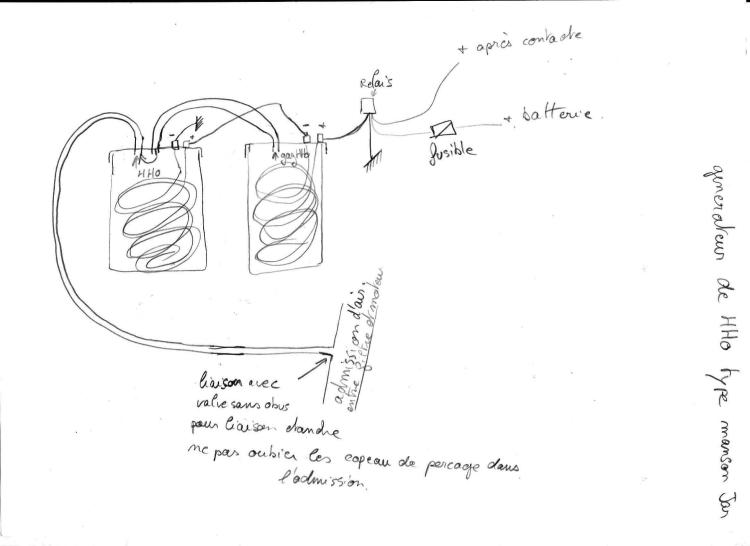 + après contacte
Relais
+ batterie.
fusible
- +
- +
HHO
gaz HHO
admission d'air,
entre filtre et moteur
liaison avec
valve sans obus
pour liaison etanche
ne pas oublier les copeau de percage dans
l'admission.
generateur de HHO type manson Jar